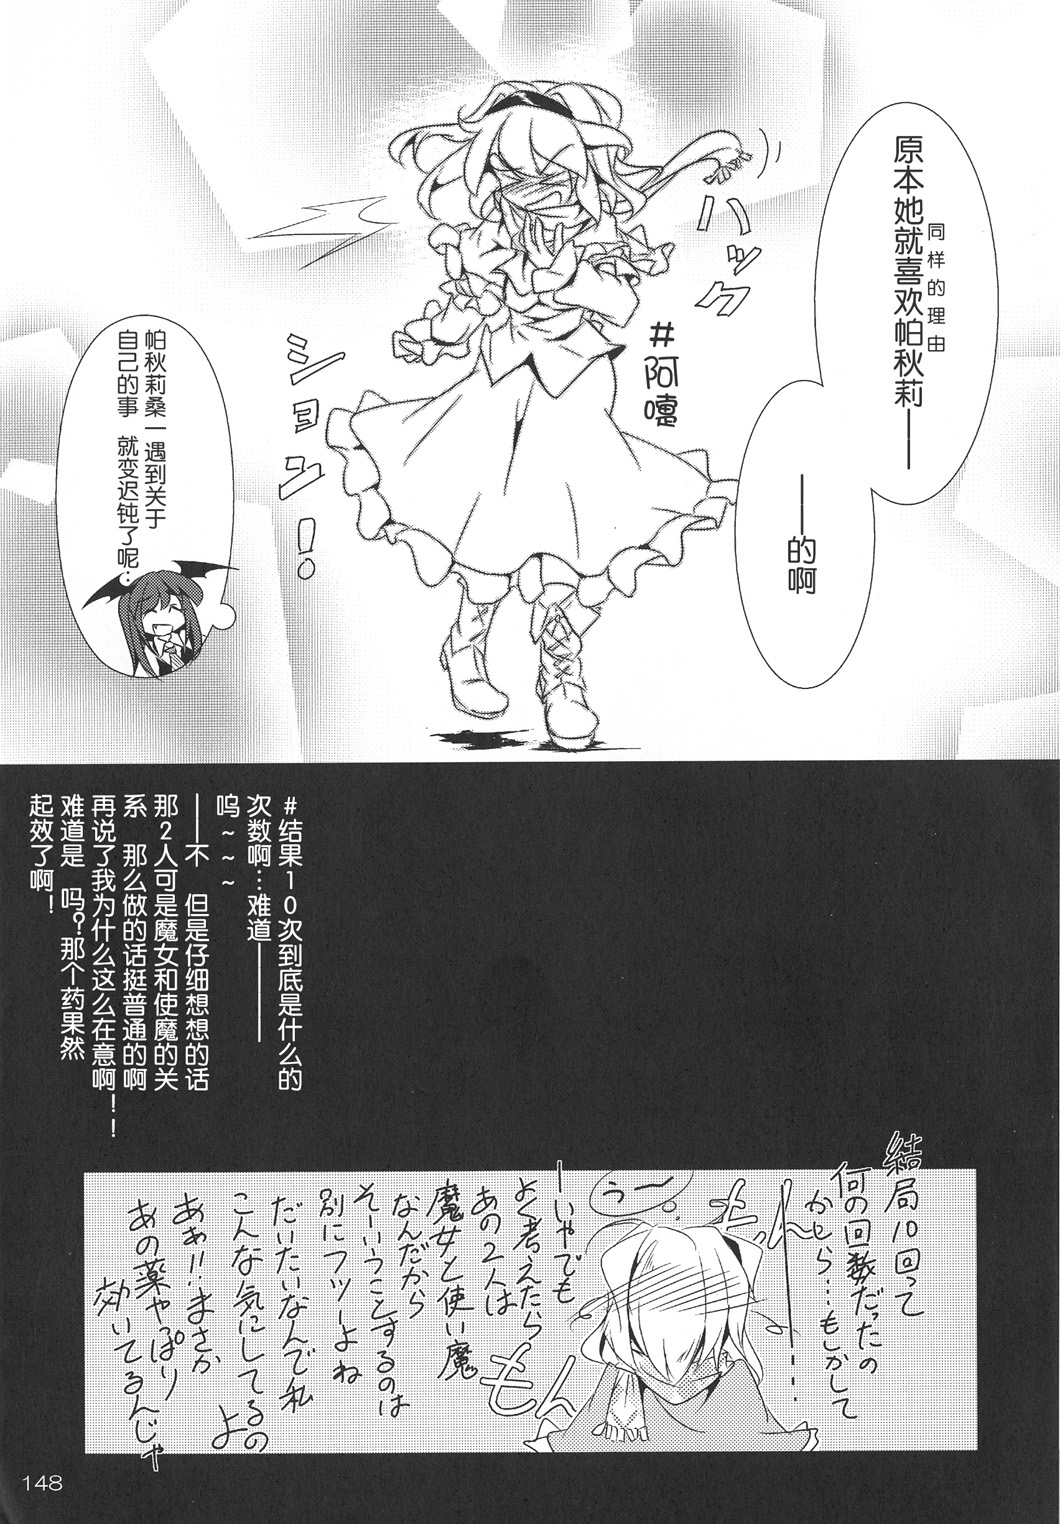 原本她就喜欢帕秋莉——
同样的理由
——的啊
ハックション！
#阿嚏
帕秋莉桑一遇到关于
自己的事 就变迟钝了呢…
#结果10次到底是什么的
次数啊…难道————
呜~~~
——不 但是仔细想想的话
那2人可是魔女和使魔的关
系 那么做的话挺普通的啊
再说了我为什么这么在意啊！！
难道是 吗？那个药果然
起效了啊！
結局10回って
何の回数だったの
かしら…もしかして
もんもん
うー
ーいやでも
よく考えたら
あの2人は
魔女と使い魔
なんだから
そーいうことするのは
別にフツーよね
だいたいなんで私
こんな気にしてるの
よ
ああ!!まさか
あの薬やっぱり
効いてるんじゃ
148